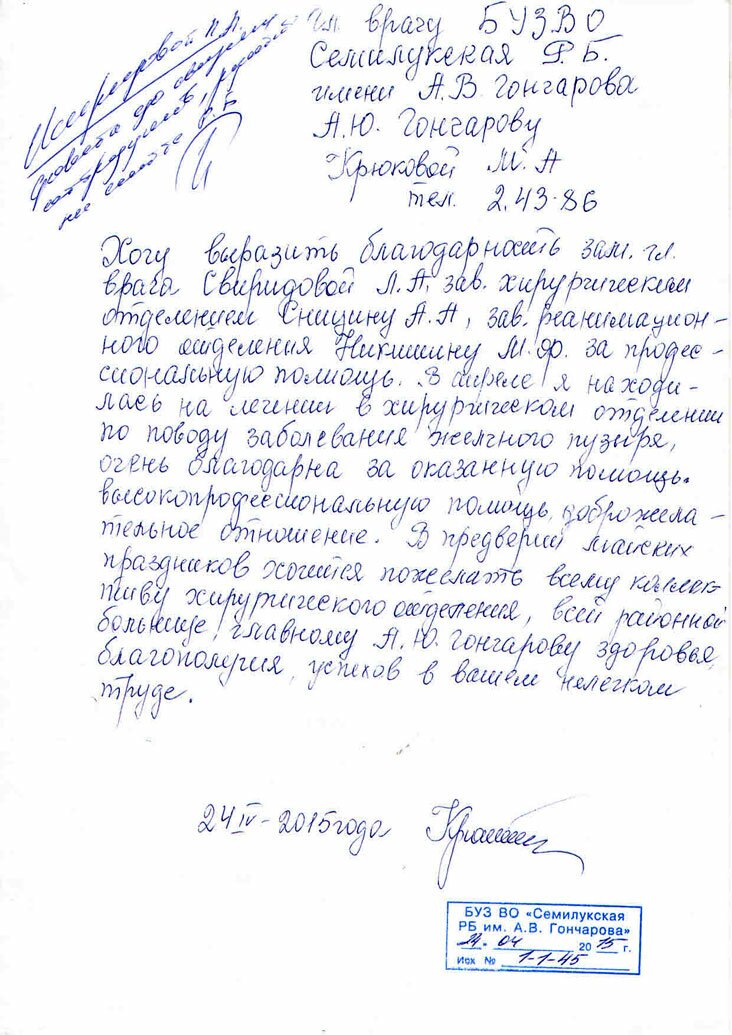 Гл. врачу БУЗВО
Семилукская Р.Б.
имени А.В. Гончарова
А.Ю. Гончарову
Крюковой М.А
тел. 2.43.86
довести до сведения
сотрудников
Хочу выразить благодарность зам. гл.
врача Свиридовой Л.А, зав. хирургическим
отделением Сницину А.А, зав. реанимацион-
ного отделения Никишину М.Ф. за профес-
сиональную помощь. В апреле я находи-
лась на лечении в хирургическом отделении
по поводу заболевания желчного пузыря,
очень благодарна за оказанную помощь.
высокопрофессиональную помощь, доброжела-
тельное отношение. В предверии майских
праздников хочется пожелать всему коллек
тиву хирургического отделения, всей районной
больнице, главному А.Ю. Гончарову здоровья,
благополучия, успехов в вашем нелегком
труде.
24 IV - 2015 года
БУЗ ВО «Семилукская
РБ им. А.В. Гончарова»
24. 04 2015 г.
Исх № 1-1-45